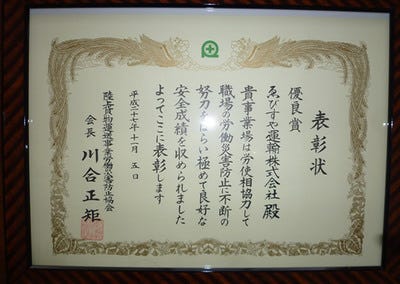 表彰状
優良賞
ゑびすや運輸株式会社 殿
貴事業場は労使相協力して
職場の労働災害防止に不断の
努力をはらい極めて良好な
安全成績を収められました
よってここに表彰します
平成二十七年十一月 五日
陸上貨物運送事業労働災害防止協会
会長 川合正矩